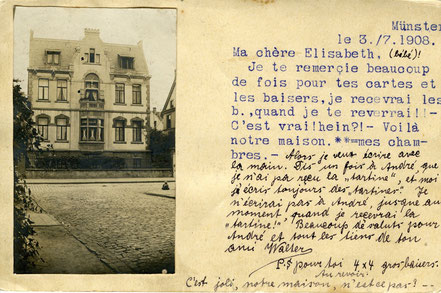 Münster
le 3./7.1908.
Ma chère Elisabeth, (bébé)!
Je te remércie beaucoup
de fois pour tes cartes et
les baisers, je recevrai les
b.,quand je te reverrai!!-
C'est vrai!hein?!- Voilà
notre maison.**=mes cham-
bres.- Alors je veux écrire avec
la main. Dis un fois à André, que
je n'ai pa reçu la "tartine", et moi
j'écris toujours des tartines! Je
n'écrirai pas à André, jusque au
moment, quand je recevrai la
"tartine!" Beaucoup de saluts pour
André et tout les tiens de ton
ami Walter
P.S pour toi 4x4 gros baisers.
Au revoir!
C'est joli, notre maison, n'est ce pas? --